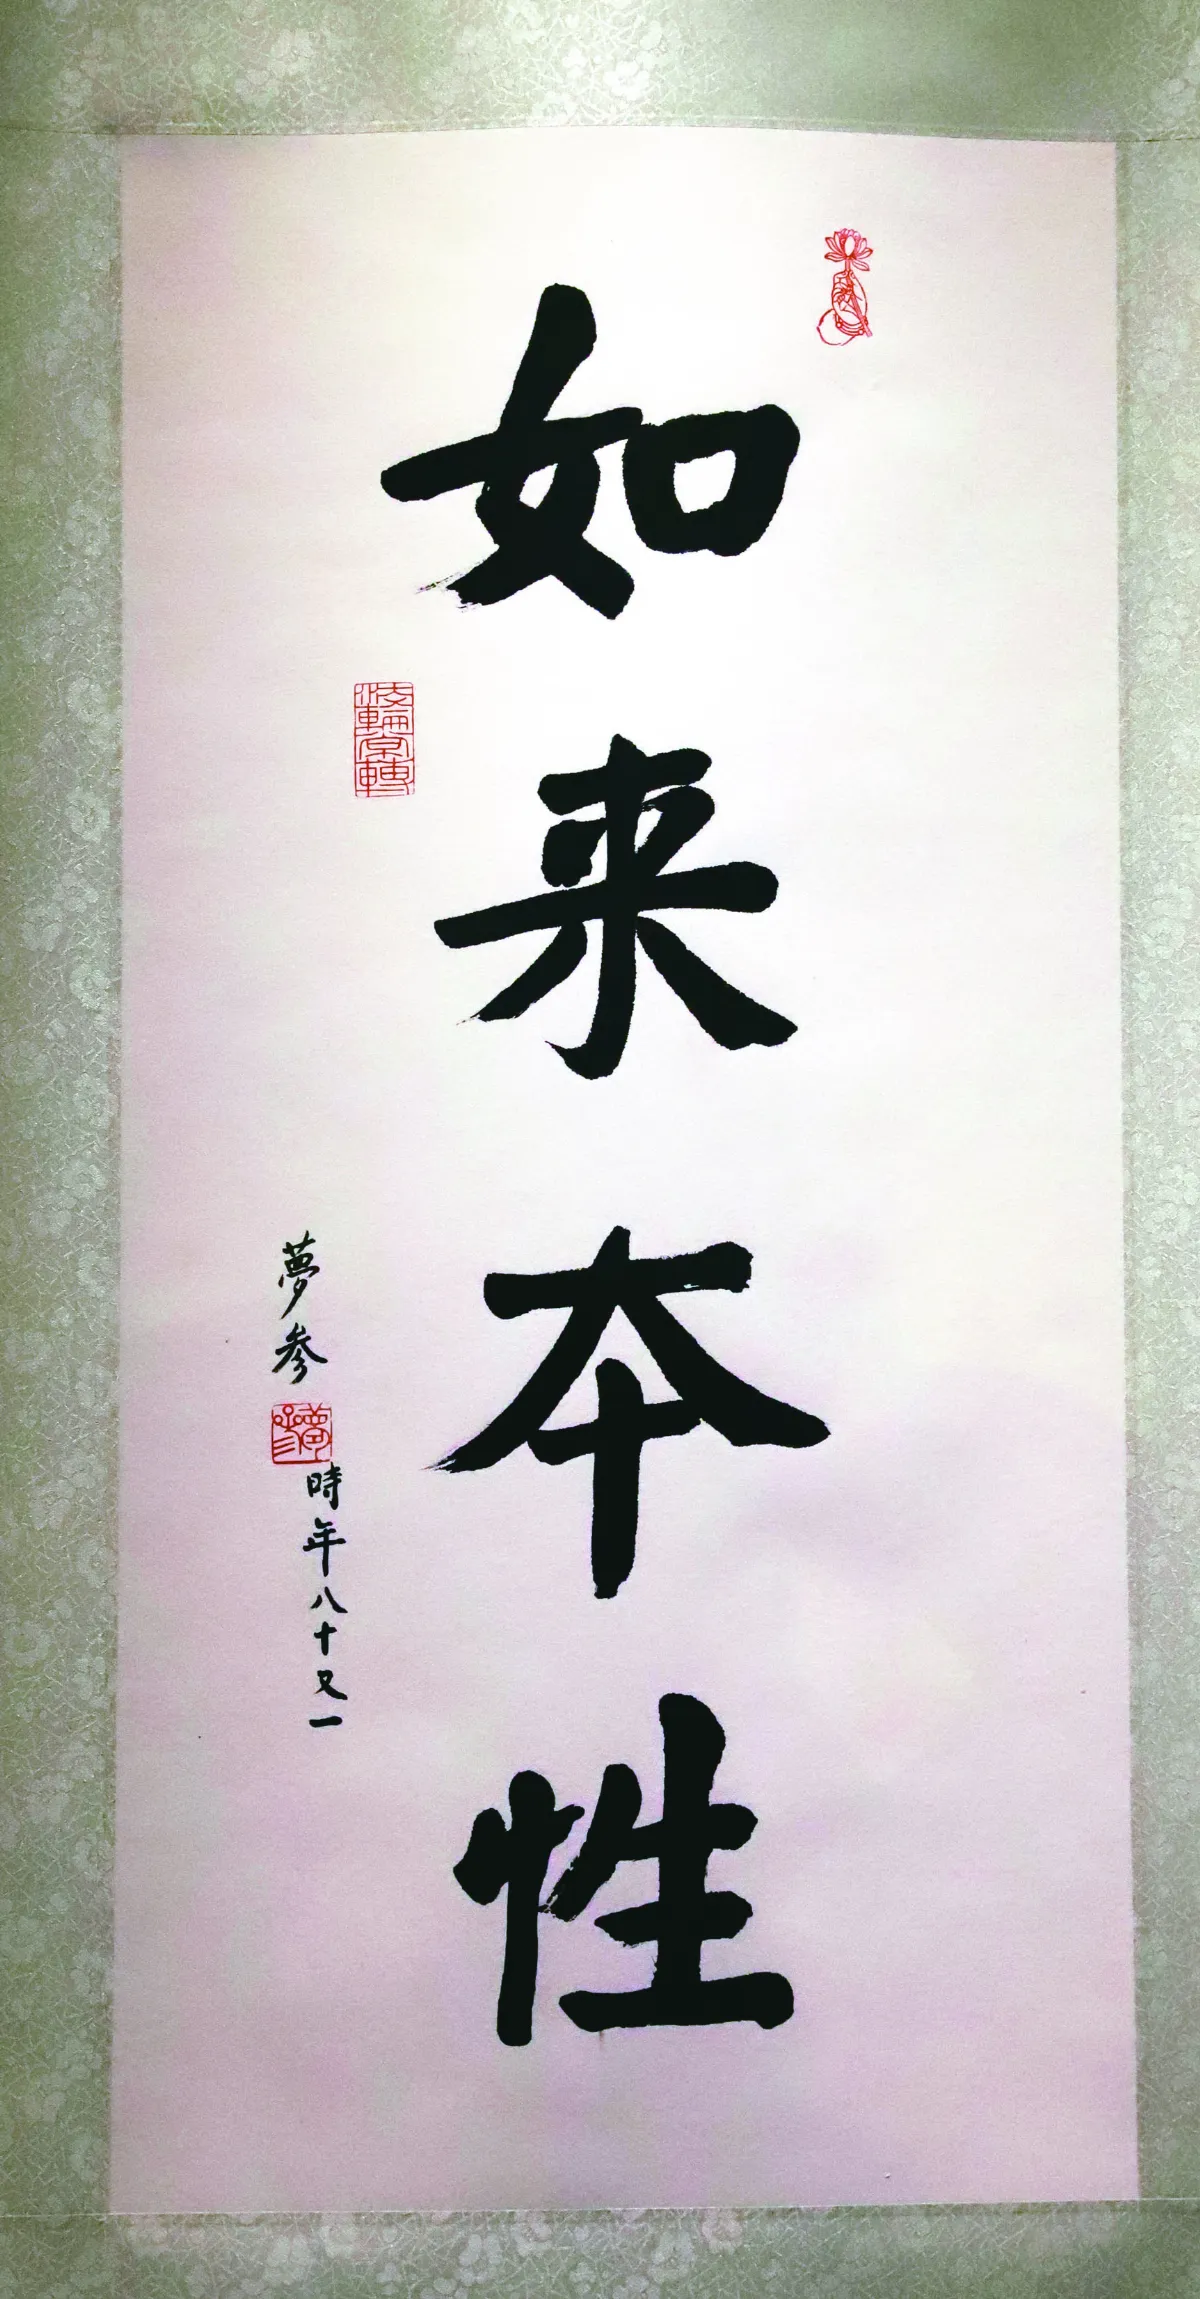 如来本性
法輪常轉
夢参
夢参
時年八十又一